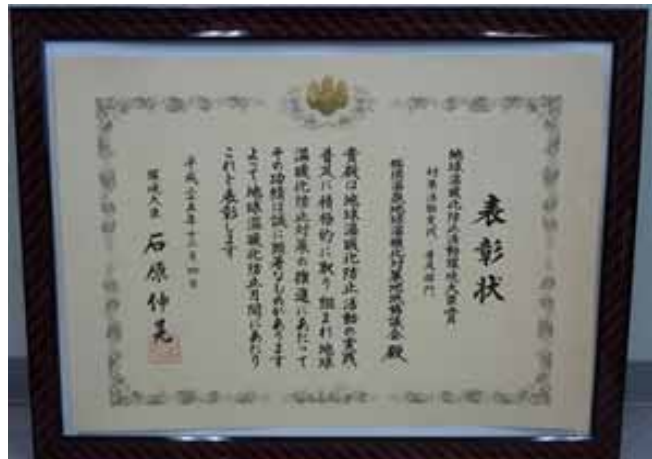 表彰状
地球温暖化防止活動環境大臣賞
対策活動実践・普及部門
温泉地球温暖化対策地域協議会殿
貴殿は地球温暖化防止活動の実践
普及に積極的に取り組まれ地球
温暖化防止対策の推進にあたって
その功績は誠に顕著なものがあります
よって地球温暖化防止月間にあたり
これを表彰します
平成二五年十二月四日
環境大臣 石原伸晃